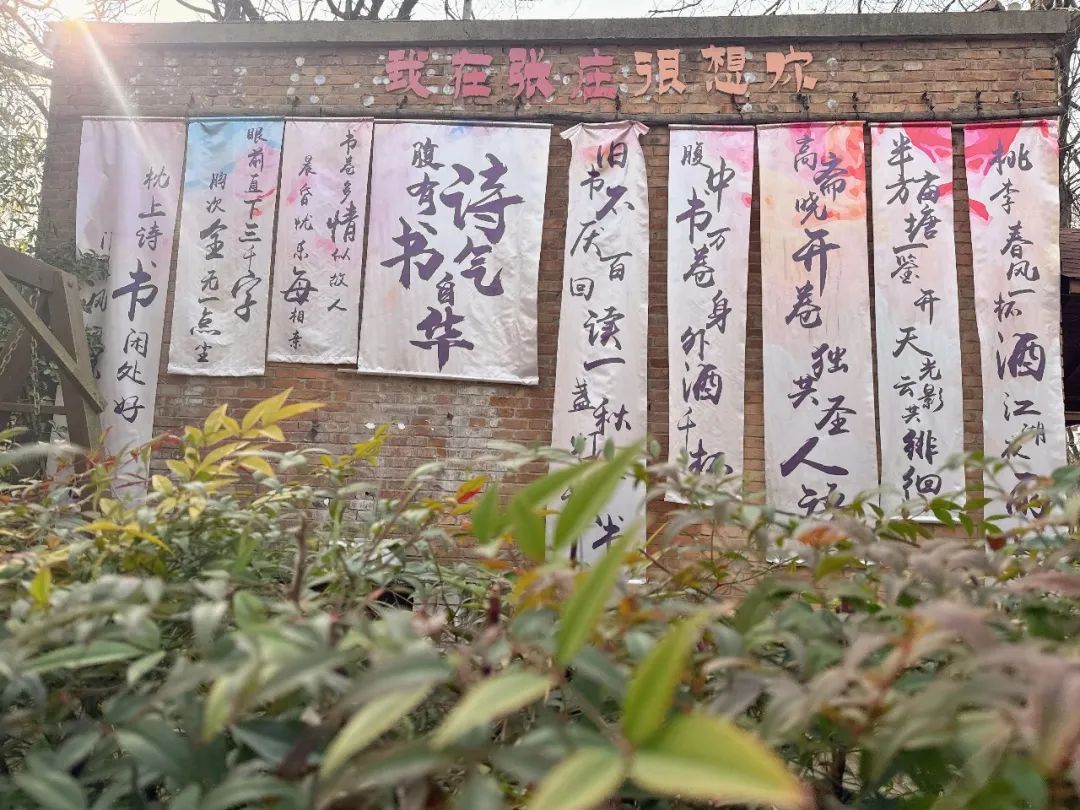 我在张庄很想你
枕上诗书闲处好
眼前直下三千字
胸次全无一点尘
书卷多情似故人
晨昏忧乐每相亲
腹有诗书气自华
旧书不厌百回读一盏秋
半
腹中书万卷身外酒千杯
高斋晓开卷独共圣人语
半亩方塘一鉴开
天光云影共徘徊
桃李春风一杯酒江湖夜雨